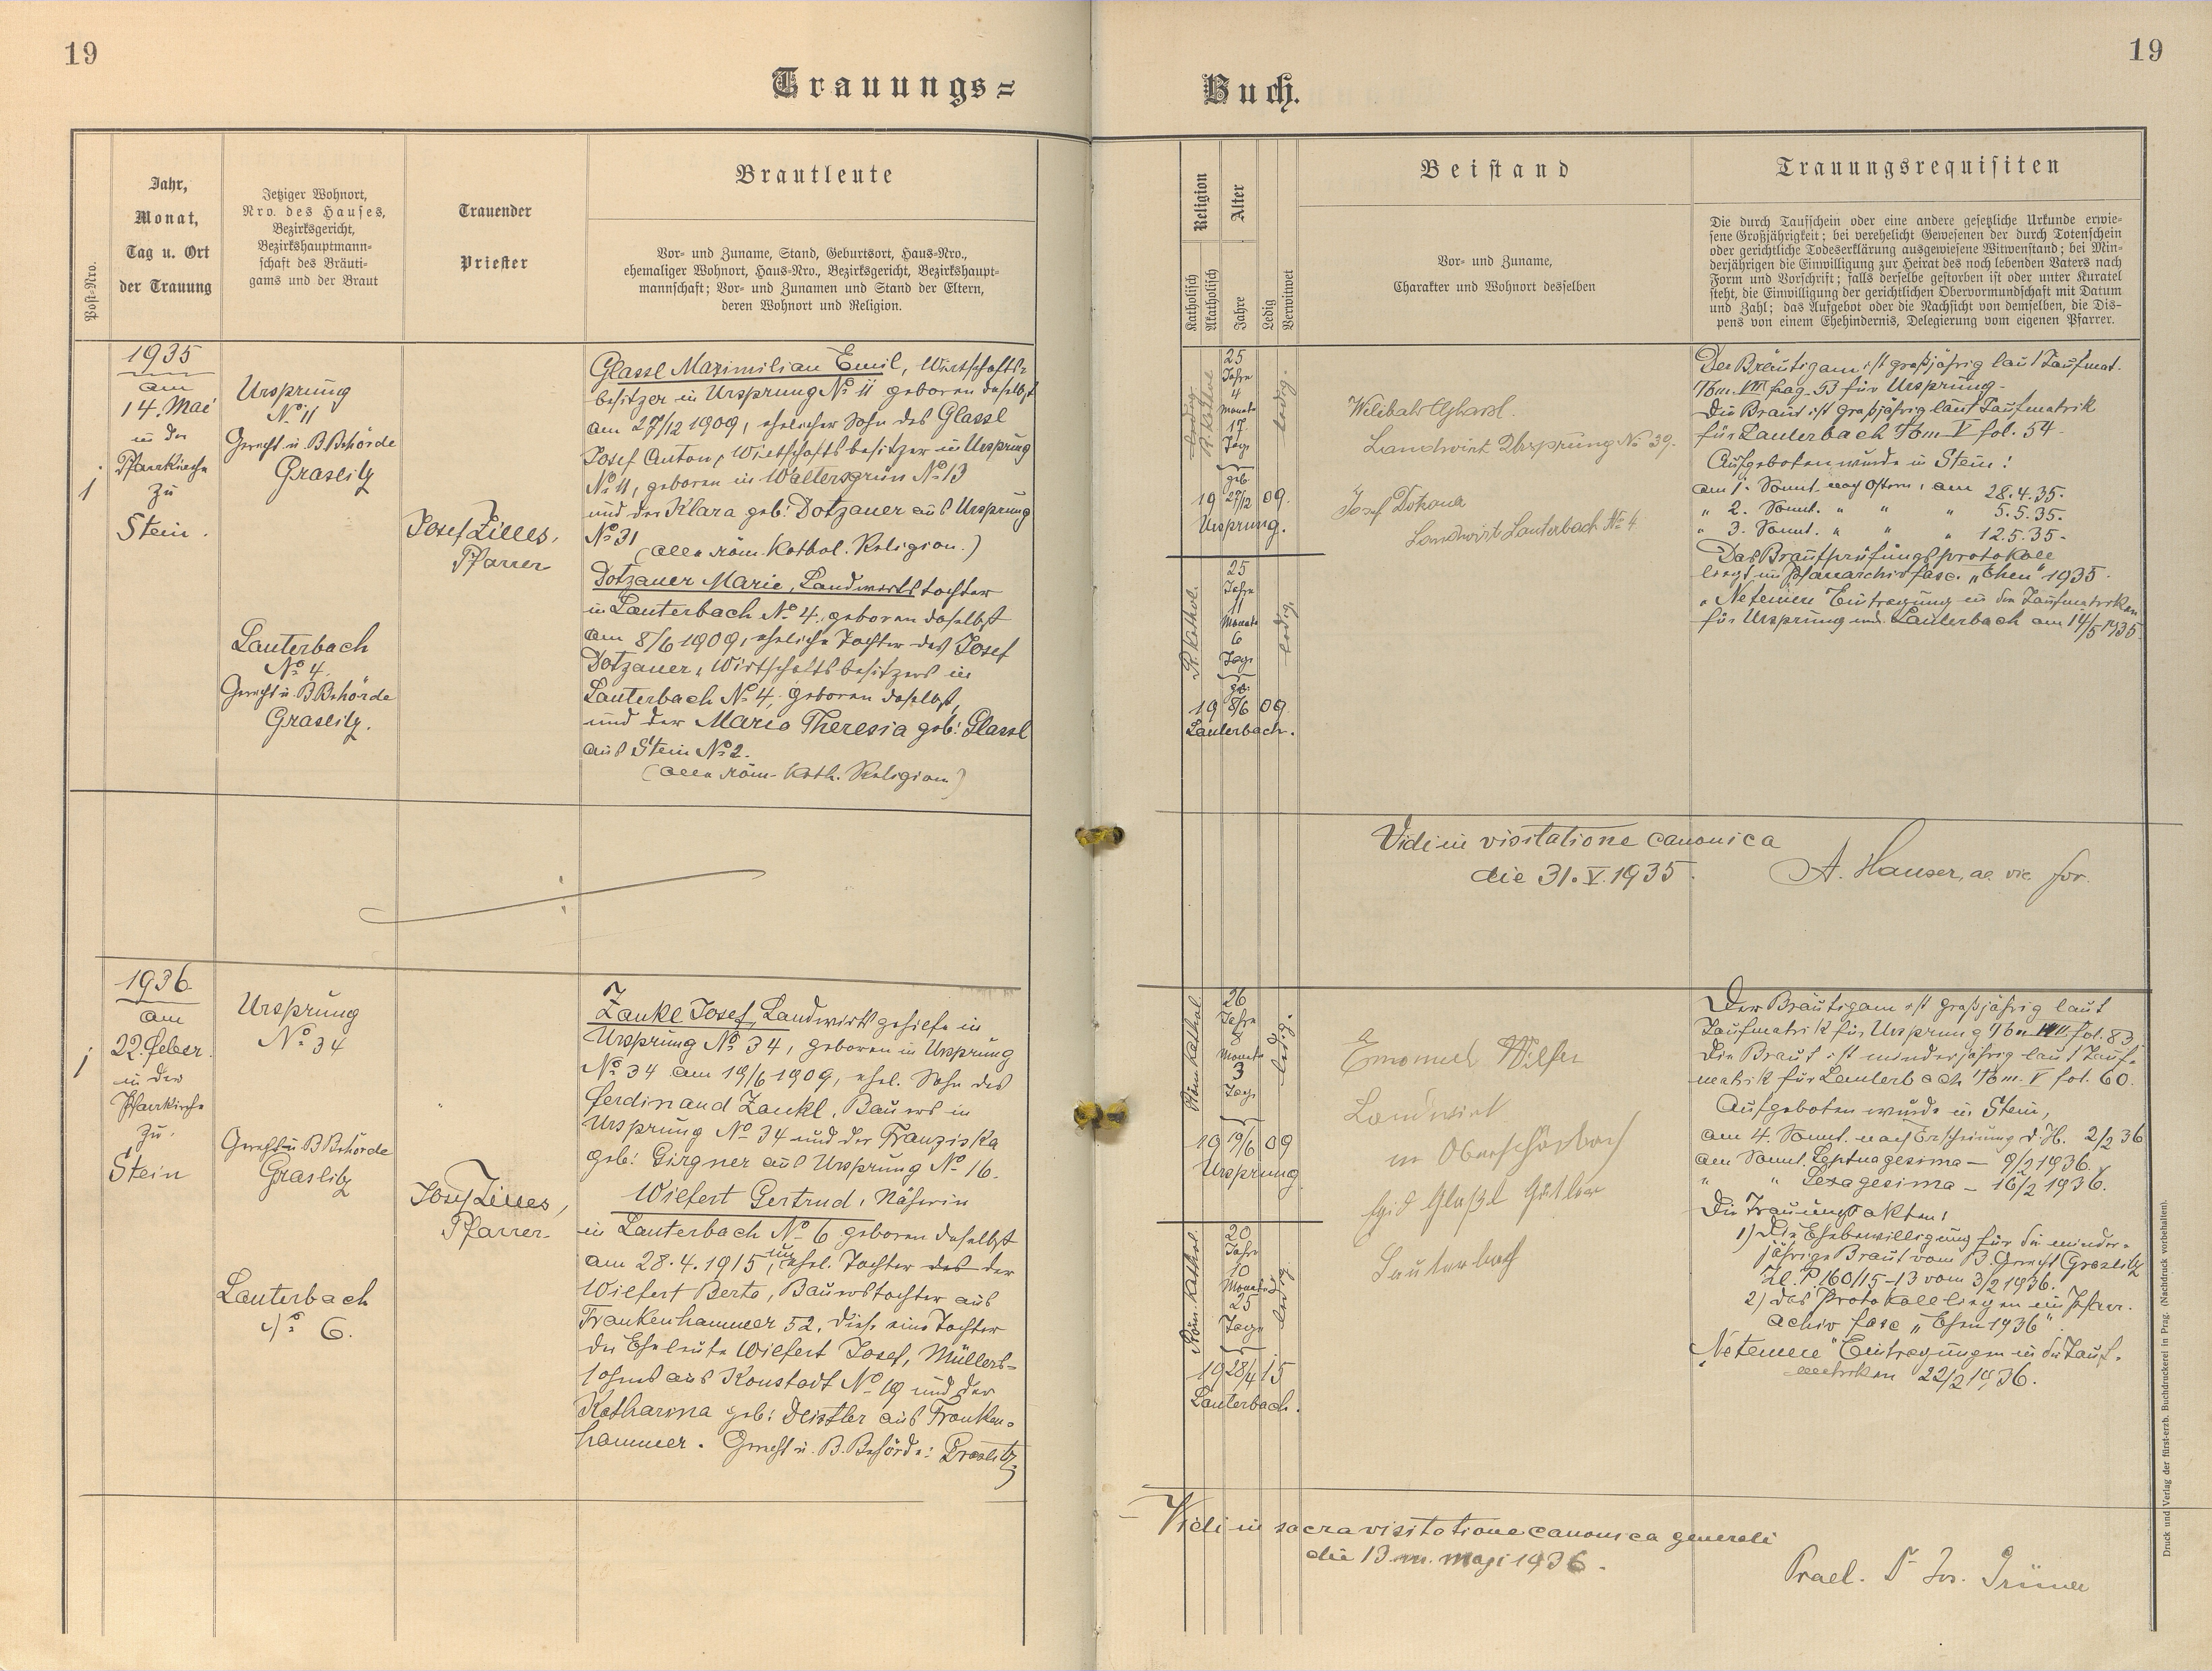 19
19
Trauungs=
Buch.
Post-Nro.
Jahr,
Monat,
Tag u. Ort
der Trauung
Jetziger Wohnort,
Nro. des Hauses,
Bezirksgericht,
Bezirkshauptmann-
schaft des Bräuti-
gams und der Braut
Trauender
Priester
Brautleute
Vor- und Zuname, Stand, Geburtsort, Haus-Nro.,
ehemaliger Wohnort, Haus-Nro., Bezirksgericht, Bezirkshaupt-
mannschaft; Vor- und Zunamen und Stand der Eltern,
deren Wohnort und Religion.
Religion
Katholisch
Akatholisch
Alter
Jahre
Ledig
Verwitwet
Beistand
Vor- und Zuname,
Charakter und Wohnort desselben
Trauungsrequisiten
Die durch Taufschein oder eine andere gesetzliche Urkunde erwie-
sene Großjährigkeit; bei verehelicht Gewesenen der durch Totenschein
oder gerichtliche Todeserklärung ausgewiesene Witwenstand; bei Min-
derjährigen die Einwilligung zur Heirat des noch lebenden Vaters nach
Form und Vorschrift; falls derselbe gestorben ist oder unter Kuratel
steht, die Einwilligung der gerichtlichen Obervormundschaft mit Datum
und Zahl; das Aufgebot oder die Nachsicht von demselben, die Dis-
pens von einem Ehehindernis, Delegierung vom eigenen Pfarrer.
1
1935
am
14. Mai
in der
Pfarrkirche
zu
Stein.
Ursprung
No 11
Gericht u. B Behörde
Graslitz
Lauterbach
No 4.
Gericht u. B Behörde
Graslitz.
Josef Zilles,
Pfarrer
Glassl Maximilian Emil, Wirtschafts-
besitzer in Ursprung No 11 geboren daselbst
am 27/12 1909, ehelicher Sohn des Glassl
Josef Anton, Wirtschaftsbesitzer in Ursprung
No 11, geboren in Waltersgrün No 13
und der Klara geb: Dotzauer aus Ursprung
No 31
(alle röm. kathol. Religion.)
Dotzauer Marie, Landwirtstochter
in Lauterbach No 4, geboren daselbst
am 8/6 1909, eheliche Tochter des Josef
Dotzauer, Wirtschaftsbesitzers in
Lauterbach No 4, geboren daselbst,
und der Maria Theresia geb: Glassl
aus Stein No 2.
(alle röm. kath. Religion)
R. Kathol
25
Jahre
4
Monate
17
Tage
geb.
19 27/12 09.
Ursprung.
ledig.
R. Kathol.
25
Jahre
11
Monate
6
Tage
geb.
19 8/6 09
Lauterbach.
ledig.
Landwirt Ursprung No 39.
Josef
Landwirt Lauterbach No 4
Der Bräutigam ist großjährig laut Taufmat.
Tom. VIII pag. 53 für Ursprung.
Die Braut ist großjährig laut Taufmatrik
für Lauterbach Tom V fol. 54.
Aufgeboten wurde in Stein:
am 1. Sonnt. nach Ostern, am 28.4.35.
" 2. Sonnt. " " " 5.5.35.
" 3. Sonnt. " " " 12.5.35.
Das Brautprüfungsprotokoll
liegt im Pfarrarchiv fasc. "Ehen" 1935.
"Ne temere" Eintragung in den Taufmatriken
für Ursprung und Lauterbach am 14/5 1935
Vidi in visitatione canonica
die 31. V. 1935.
A. Hauser, ae. vic. for.
1
1936
am
22. Feber.
in der
Pfarrkirche
zu
Stein
Ursprung
No 34
Gericht u B Behörde
Graslitz
Lauterbach
No 6.
Josef Zilles,
Pfarrer.
Zankl Josef, Landwirtsgehilfe in
Ursprung No 34, geboren in Ursprung
No 34 am 19/6 1909, ehel. Sohn des
Ferdinand Zankl, Bauers in
Ursprung No 34 und der Franziska
geb: Girgner aus Ursprung No 16.
Wilfert Gertrud, Näherin
in Lauterbach No 6 geboren daselbst
am 28.4.1915, unehel. Tochter der
Wilfert Berta, Bauerstochter aus
Frankenhammer 52, diese eine Tochter
der Eheleute Wilfert Josef, Müllers-
sohns aus Konstadt No 19 und der
Katharina geb: Deistler aus Franken-
hammer. Gericht u. B. Behörde: Graslitz
Röm. Kathol.
26
Jahre
8
Monate
3
Tage
19 19/6 09
Ursprung
ledig.
Röm. Kathol.
20
Jahre
10
Monate
25
Tage
19 28/4 15
Lauterbach.
ledig
Emanuel Wilfer
Landwirt
in Oberschönbach
Egid Glaßl Gütler
Lauterbach
Der Bräutigam ist großjährig laut
Taufmatrik für Ursprung Tom VIII fol. 83.
Die Braut ist minderjährig laut Tauf-
matrik für Lauterbach Tom. V fol. 60.
Aufgeboten wurde in Stein,
am 4. Sonnt. nach Erscheinung d. H. 2/2 36
am Sonnt. Septuagesima - 9/2 1936.
" " Sexagesima - 16/2 1936.
Die Trauungsakten:
1) Die Ehebewilligung für die minder-
jährige Braut vom B. Gericht Graslitz
Zl. P. 160/15-13 vom 3/2 1936.
2) das Protokoll liegen im Pfarr-
achiv fasc "Ehen 1936".
"Ne temere" Eintragungen in die Tauf-
matriken 22/2 1936.
Vidi in sacra visitatione canonica generali
die 13 m. maji 1936.
Prael. Dr Jos. Grüner
Druck und Verlag der fürst-erzb. Buchdruckerei in Prag. (Nachdruck vorbehalten).